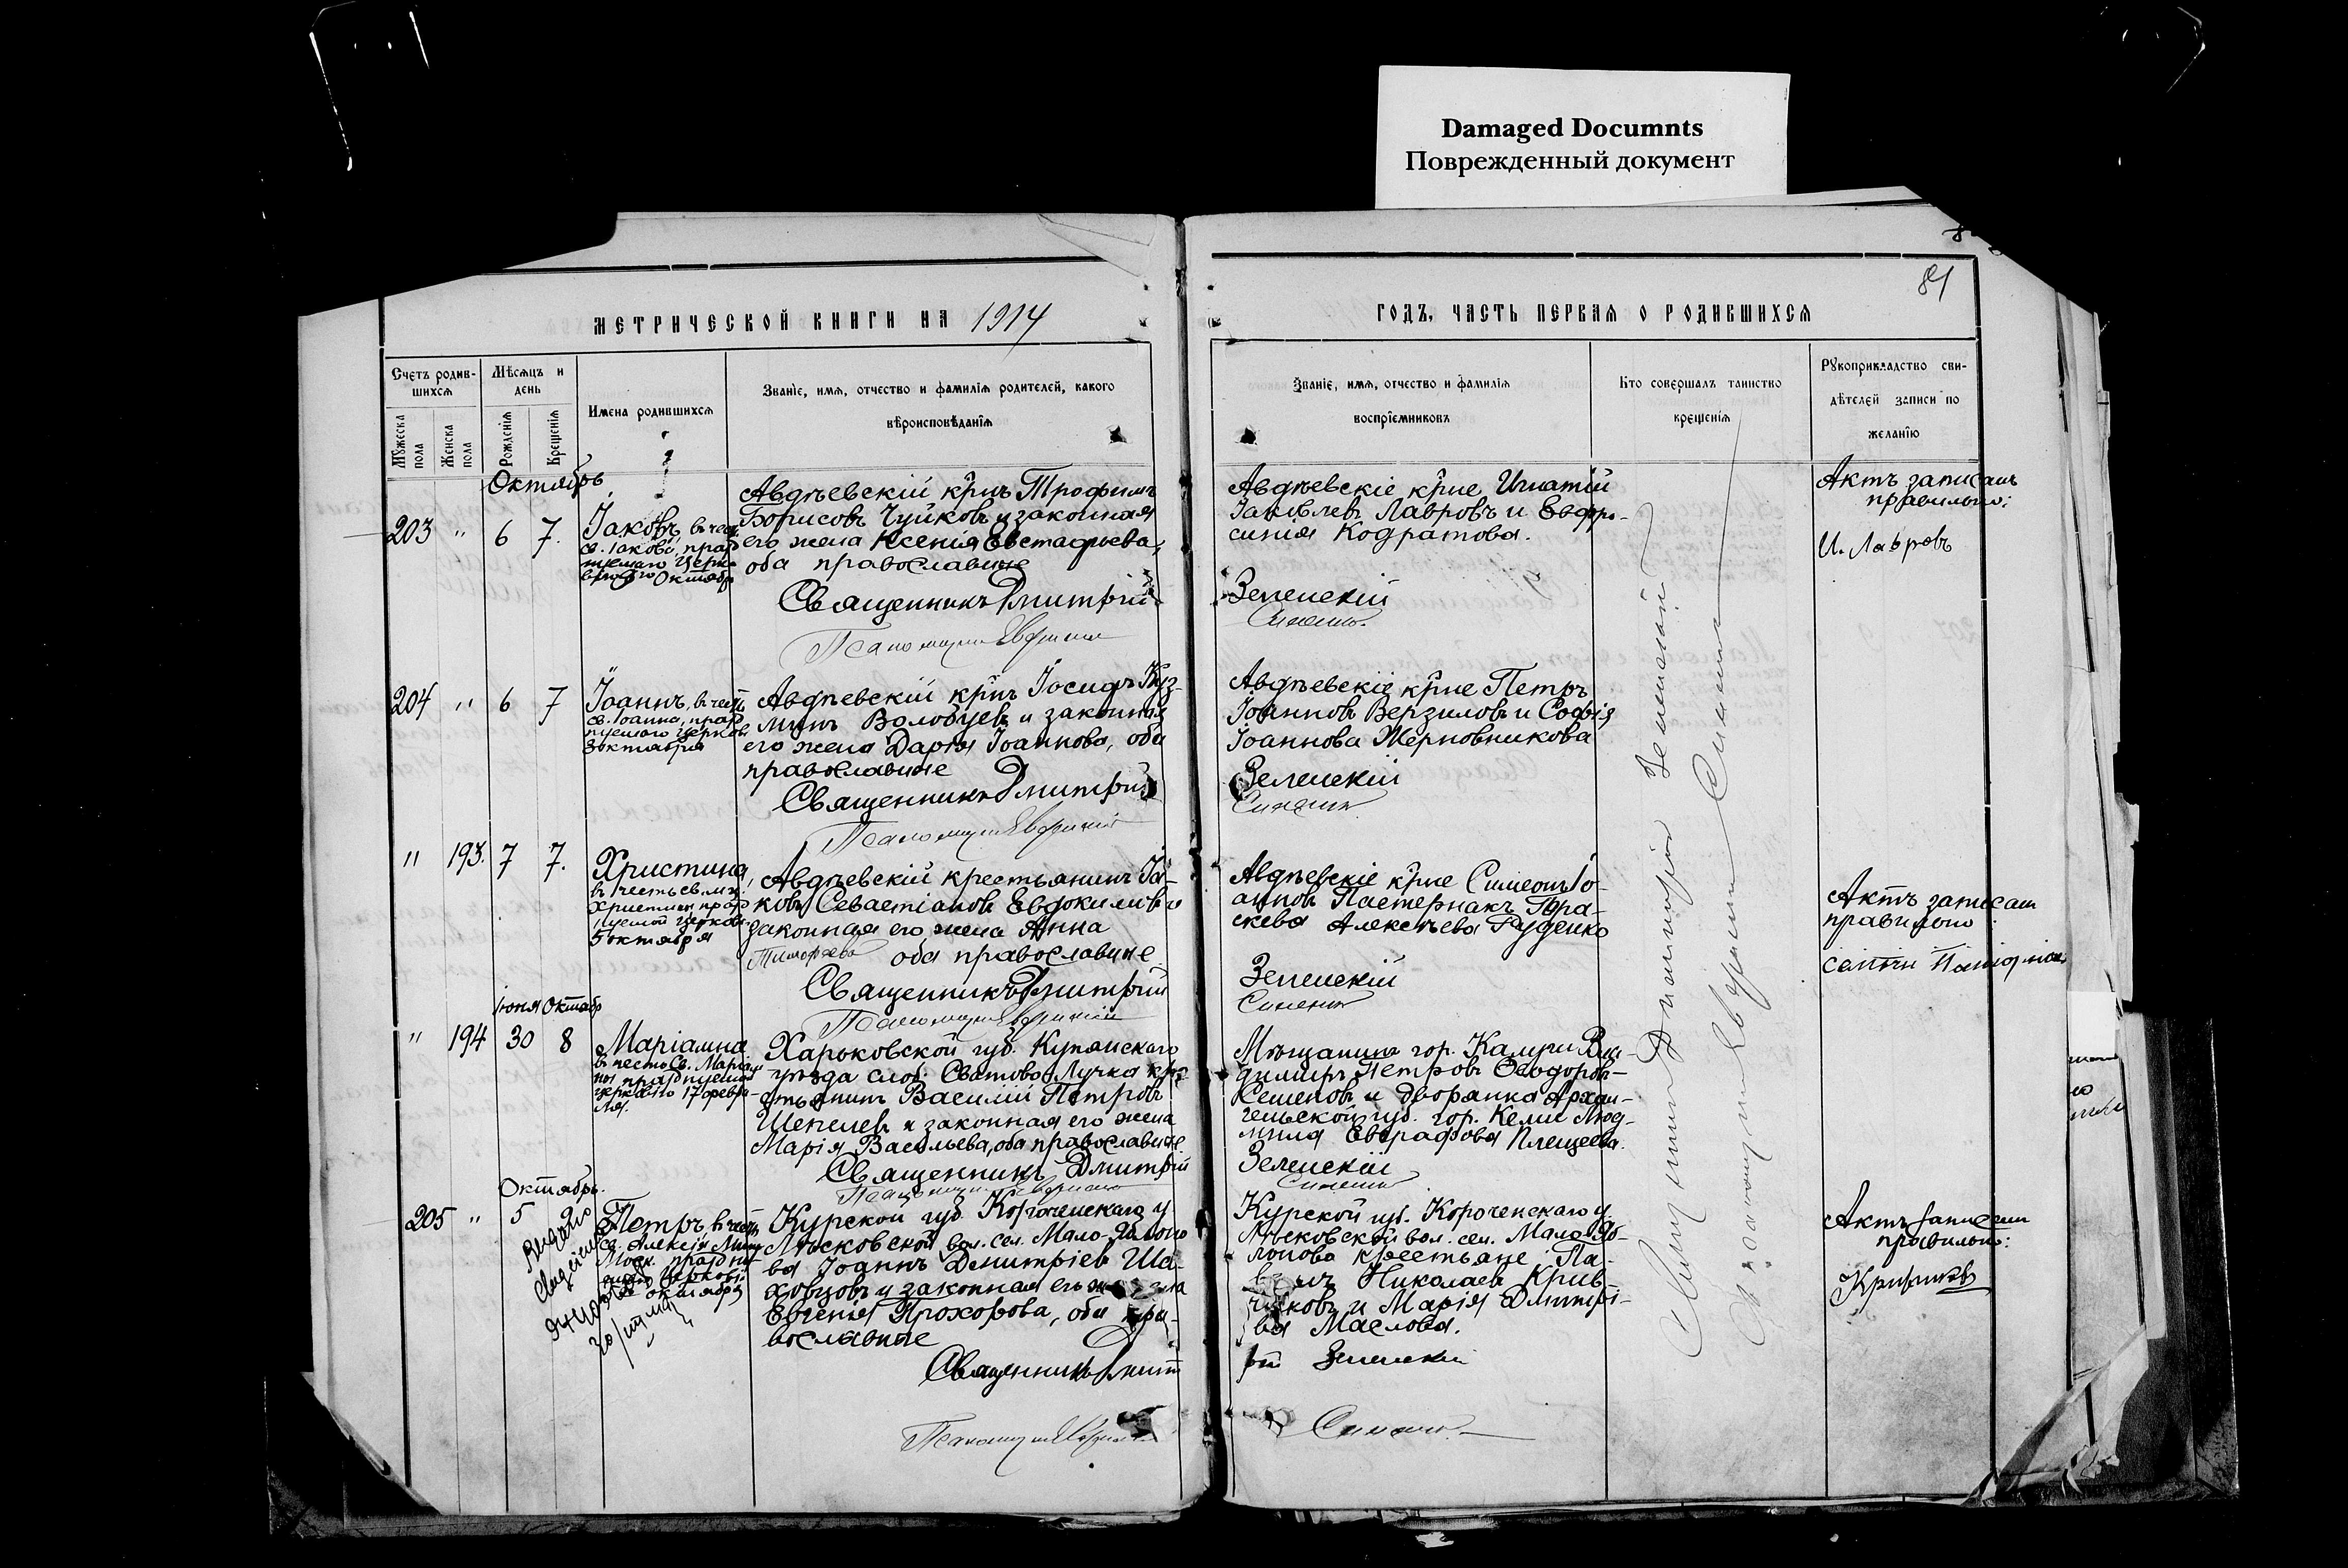 Damaged Documnts
Поврежденный документ
81
МЕТРИЧЕСКОЙ КНИГИ НА 1914
ГОДЪ, ЧАСТЬ ПЕРВАЯ О РОДИВШИХСЯ
Счетъ родив-
шихся
Мужеска пола
Женска пола
Мѣсяцъ и
день
Рожденія
Крещенія
Имена родившихся
Званіе, имя, отчество и фамилія родителей, какого
вѣроисповѣданія
Званіе, имя, отчество и фамилія
воспріемниковъ
Кто совершалъ таинство
крещенія
Рукоприкладство сви-
дѣтелей записи по
желанію
Октябрь
203 " 6 7.
Іаковъ, въ чест
св. Іакова, праз
Октябр
Авдѣевскій крнъ Трофимъ
Борисовъ Чуйковъ и законная
его жена Ксенія Евстафьева,
оба православные
Священникъ Дмитрій
Авдѣевскіе крне Игнатій
Іаковлевъ Лавровъ и Евфро-
синія Кодратова.
Зеленскій
Актъ записанъ
правильно:
И. Лавровъ
204 " 6 7
Іоаннъ, въ честь
св. Іоанна, праз
нуемаго церковь
3 октября
Авдѣевскій крнъ Іосифъ Куз-
минъ Волобуевъ и законная
его жена Дарія Іоаннова, оба
православные
Священникъ Дмитрій
Авдѣевскіе крне Петръ
Іоанновъ Верзиловъ и Софія
Іоаннова Жерновникова
Зеленскій
" 193. 7 7.
Христина,
въ честь св. мц.
Христины праз
нуемой церковь
5 октября
Авдѣевскій крестьянинъ Іа-
ковъ Севастіановъ Евдокимовъ и
законная его жена Анна
Тимофеева оба православные
Священникъ Дмитрій
Авдѣевскіе крне Симеонъ Іо-
анновъ Пастернакъ Пара-
скева Алексѣева Руденко
Зеленскій
Актъ записан
правильно:
Іюня Октябр
" 194 30 8
Маріамна
въ честь св. Маріам
ны празднуемой
церковію 17 февра-
ля.
Харьковской губ. Купянскаго
уѣзда слоб. Сватово Лучка кре
стьянинъ Василій Петровъ
Шепелевъ и законная его жена
Марія Васильева, оба православные
Священникъ Дмитрій
Мѣщанинъ гор. Калуги Вла-
димиръ Петровъ Ѳеодоровъ-
Семеновъ и дворянка Архан-
гельской губ. гор. Кеми Люд-
мила Евграфова Плещеева.
Зеленскій
Октябрь.
205 " 5
Петръ, въ честь
св. Алексія Митр
Моск. праздну
церковію
5 октября
Курской губ. Корочанскаго у
Лѣсковской вол. сел. Мало-Яблоно
ва Іоаннъ Димитріев Ша-
ховцовъ и законная его жена
Евгенія Прохорова, оба пра-
вославные
Священникъ Дмит
Курской губ. Корочанскаго у.
Лѣсковской вол. сел. Мало-Яб-
лонова крестьяне Па-
Николаев Крив-
чиковъ и Марія Дмитрі-
ва Маслова.
рій Зеленскій
Актъ записан
правильно:
Священникъ Димитрій Зеленскій